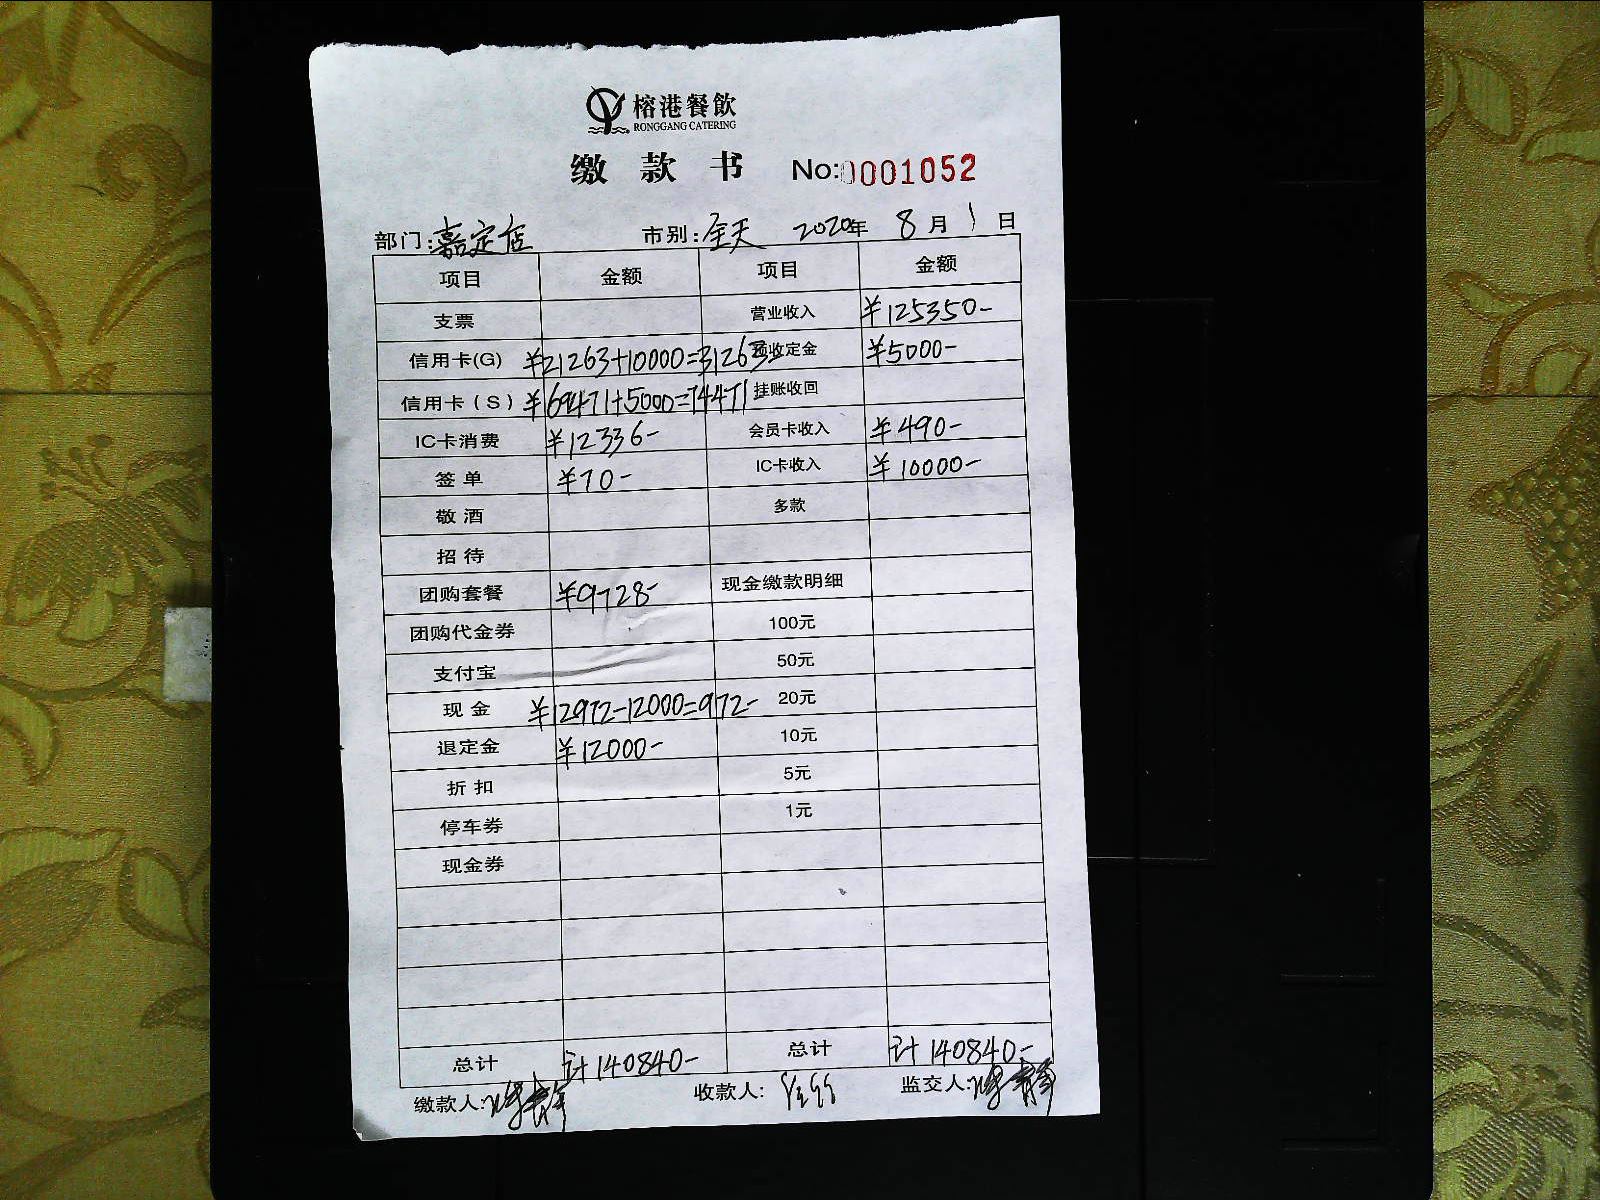 榕港餐飲
RONGGANG CATERING
缴 款 书 No:0001052
部门:嘉定店 市别:全天 2020年 8月 1日
项目 金额 项目 金额
支票 营业收入 ¥125350-
信用卡(G) ¥21263+10000=31263 预收定金 ¥5000-
信用卡(S) ¥69471+5000=74471 挂账收回
IC卡消费 ¥12336- 会员卡收入 ¥490-
签 单 ¥70- IC卡收入 ¥10000-
敬 酒 多款
招 待
团购套餐 ¥9728- 现金缴款明细
团购代金券 100元
支付宝 50元
现 金 ¥12972-12000=972- 20元
退定金 ¥12000- 10元
折 扣 5元
停车券 1元
现金券
总计 计140840- 总计 计140840-
缴款人: 收款人: 监交人: